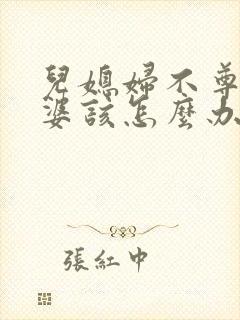 兒媳婦不尊
婆該怎麼办
張紅中